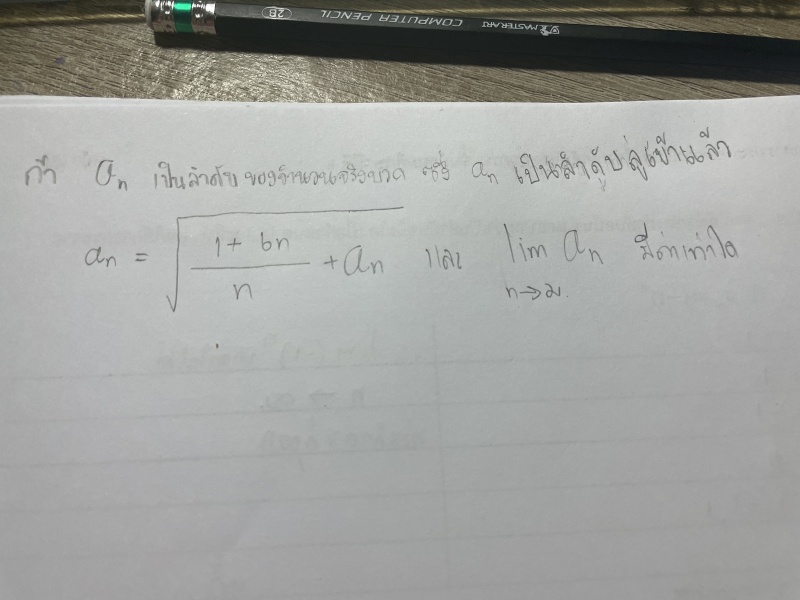 MASTERART COMPUTER PENCIL 2B
ถ้า aₙ เป็นลำดับ ของจำนวนจริงบวก ซึ่ง aₙ เป็นลำดับลู่เข้าแล้ว
aₙ = √((1 + 6n)/n + aₙ) และ lim aₙ มีค่าเท่าใด
n→∞